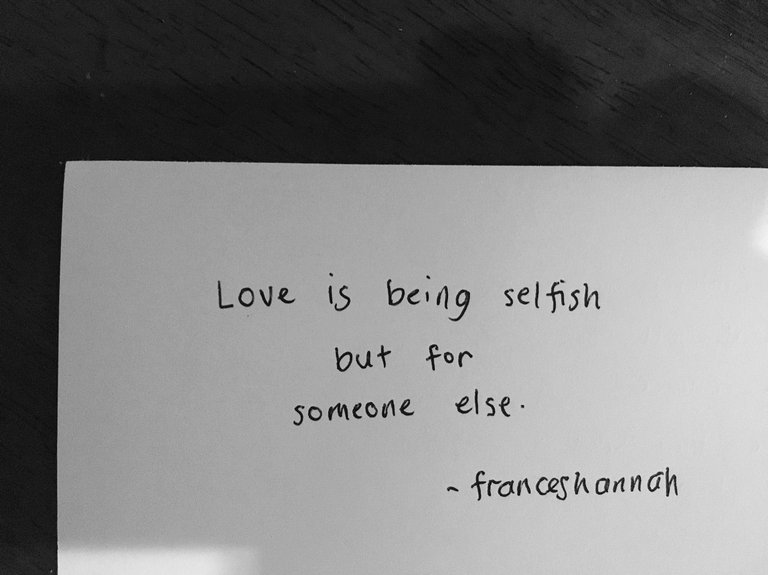 Love is being selfish
but for
someone else.
~ franceshannah